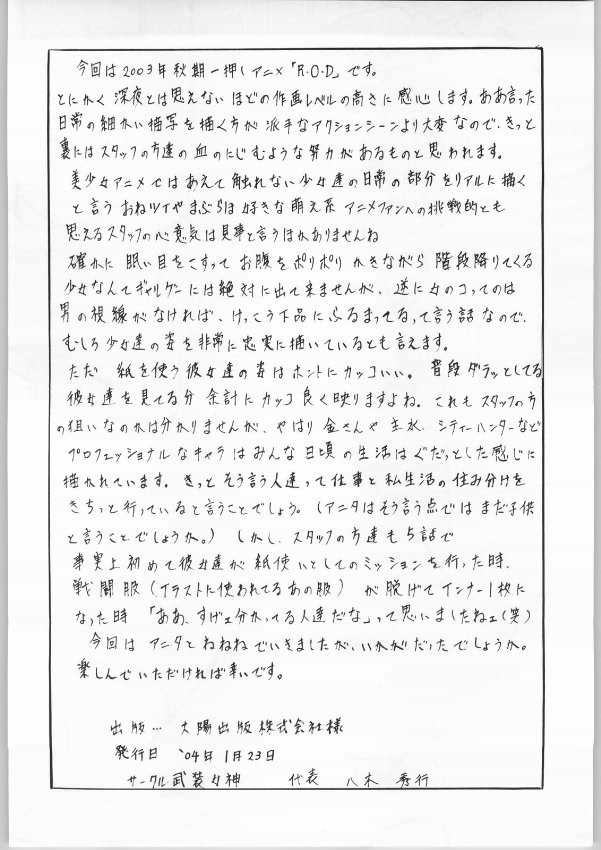 今回は2003年秋期一押しアニメ「R.O.D」です。
とにかく深夜とは思えないほどの作画レベルの高さに感心します。ああ言った
日常の細かい描写を描く方が派手なアクションシーンより大変なので、きっと
裏にはスタッフの方達の血のにじむような努力があるものと思われます。
美少女アニメではあえて触れない少女達の日常の部分をリアルに描く
と言うおねツイやまぶらほ好きな萌え系アニメファンへの挑戦的とも
思えるスタッフの心意気は見事と言うほかありませんね
確かに眠い目をこすってお腹をポリポリかきながら階段降りてくる
少女なんてギャルゲーには絶対に出て来ませんが、逆に女のコってのは
男の視線がなければ、けっこう下品にふるまってるって言う話なので、
むしろ少女達の姿を非常に忠実に描いているとも言えます。
ただ紙を使う彼女達の姿はホントにカッコいい。普段ダラッとしてる
彼女達を見てる分余計にカッコ良く映りますよね。これもスタッフの方
の狙いなのかは分かりませんが、やはり金さんや主水、シティーハンターなど
プロフェッショナルなキャラはみんな日頃の生活はぐだっとした感じに
描かれています。きっとそう言う人達って仕事と私生活の住み分けを
きちっと行っていると言うことでしょう。(アニタはそう言う点ではまだ子供
と言うことでしょうか。) しかし、スタッフの方達も5話で
事実上初めて彼女達が紙使いとしてのミッションを行った時、
戦闘服(イラストに使われてるあの服)が脱げてインナー1枚に
なった時「ああ、すげェ分かってる人達だな」って思いましたねェ(笑)
今回はアニタとねねねでいきましたが、いかがだったでしょうか。
楽しんでいただければ幸いです。
出版… 大陽出版株式会社様
発行日 '04年1月23日
サークル武装女神 代表 八木 秀行